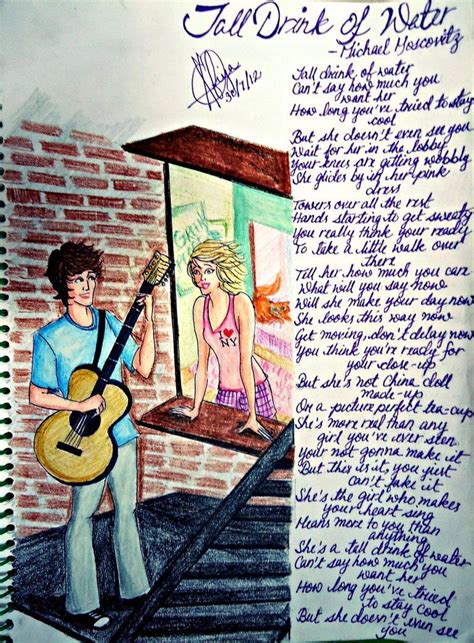 Tall Drink of Water
- Michael Moscovitz
30/7/12
Tall drink of water
Can't say how much you
want her
How long you've tried to stay
cool
But she doesn't even see you
Wait for her in the lobby
Your knees are getting wobbly
She glides by in her pink
dress
Towers over all the rest
Hands starting to get sweaty
You really think your ready
To take a little walk over
there
Tell her how much you care
What will you say now
Will she make your day now
She looks this way now
Get moving, don't delay now
You think you're ready for
your close-up
But she's not China doll
made-up
On a picture perfect tea-cup
She's more real than any
girl you've ever seen
Your not gonna make it
But this is it, you just
can't fake it
She's the girl who makes
your heart sing
Means more to you than
anything
She's a tall drink of water
Can't say how much you
want her
How long you've tried
to stay cool
But she doesn't even see
you
I ♥
NY